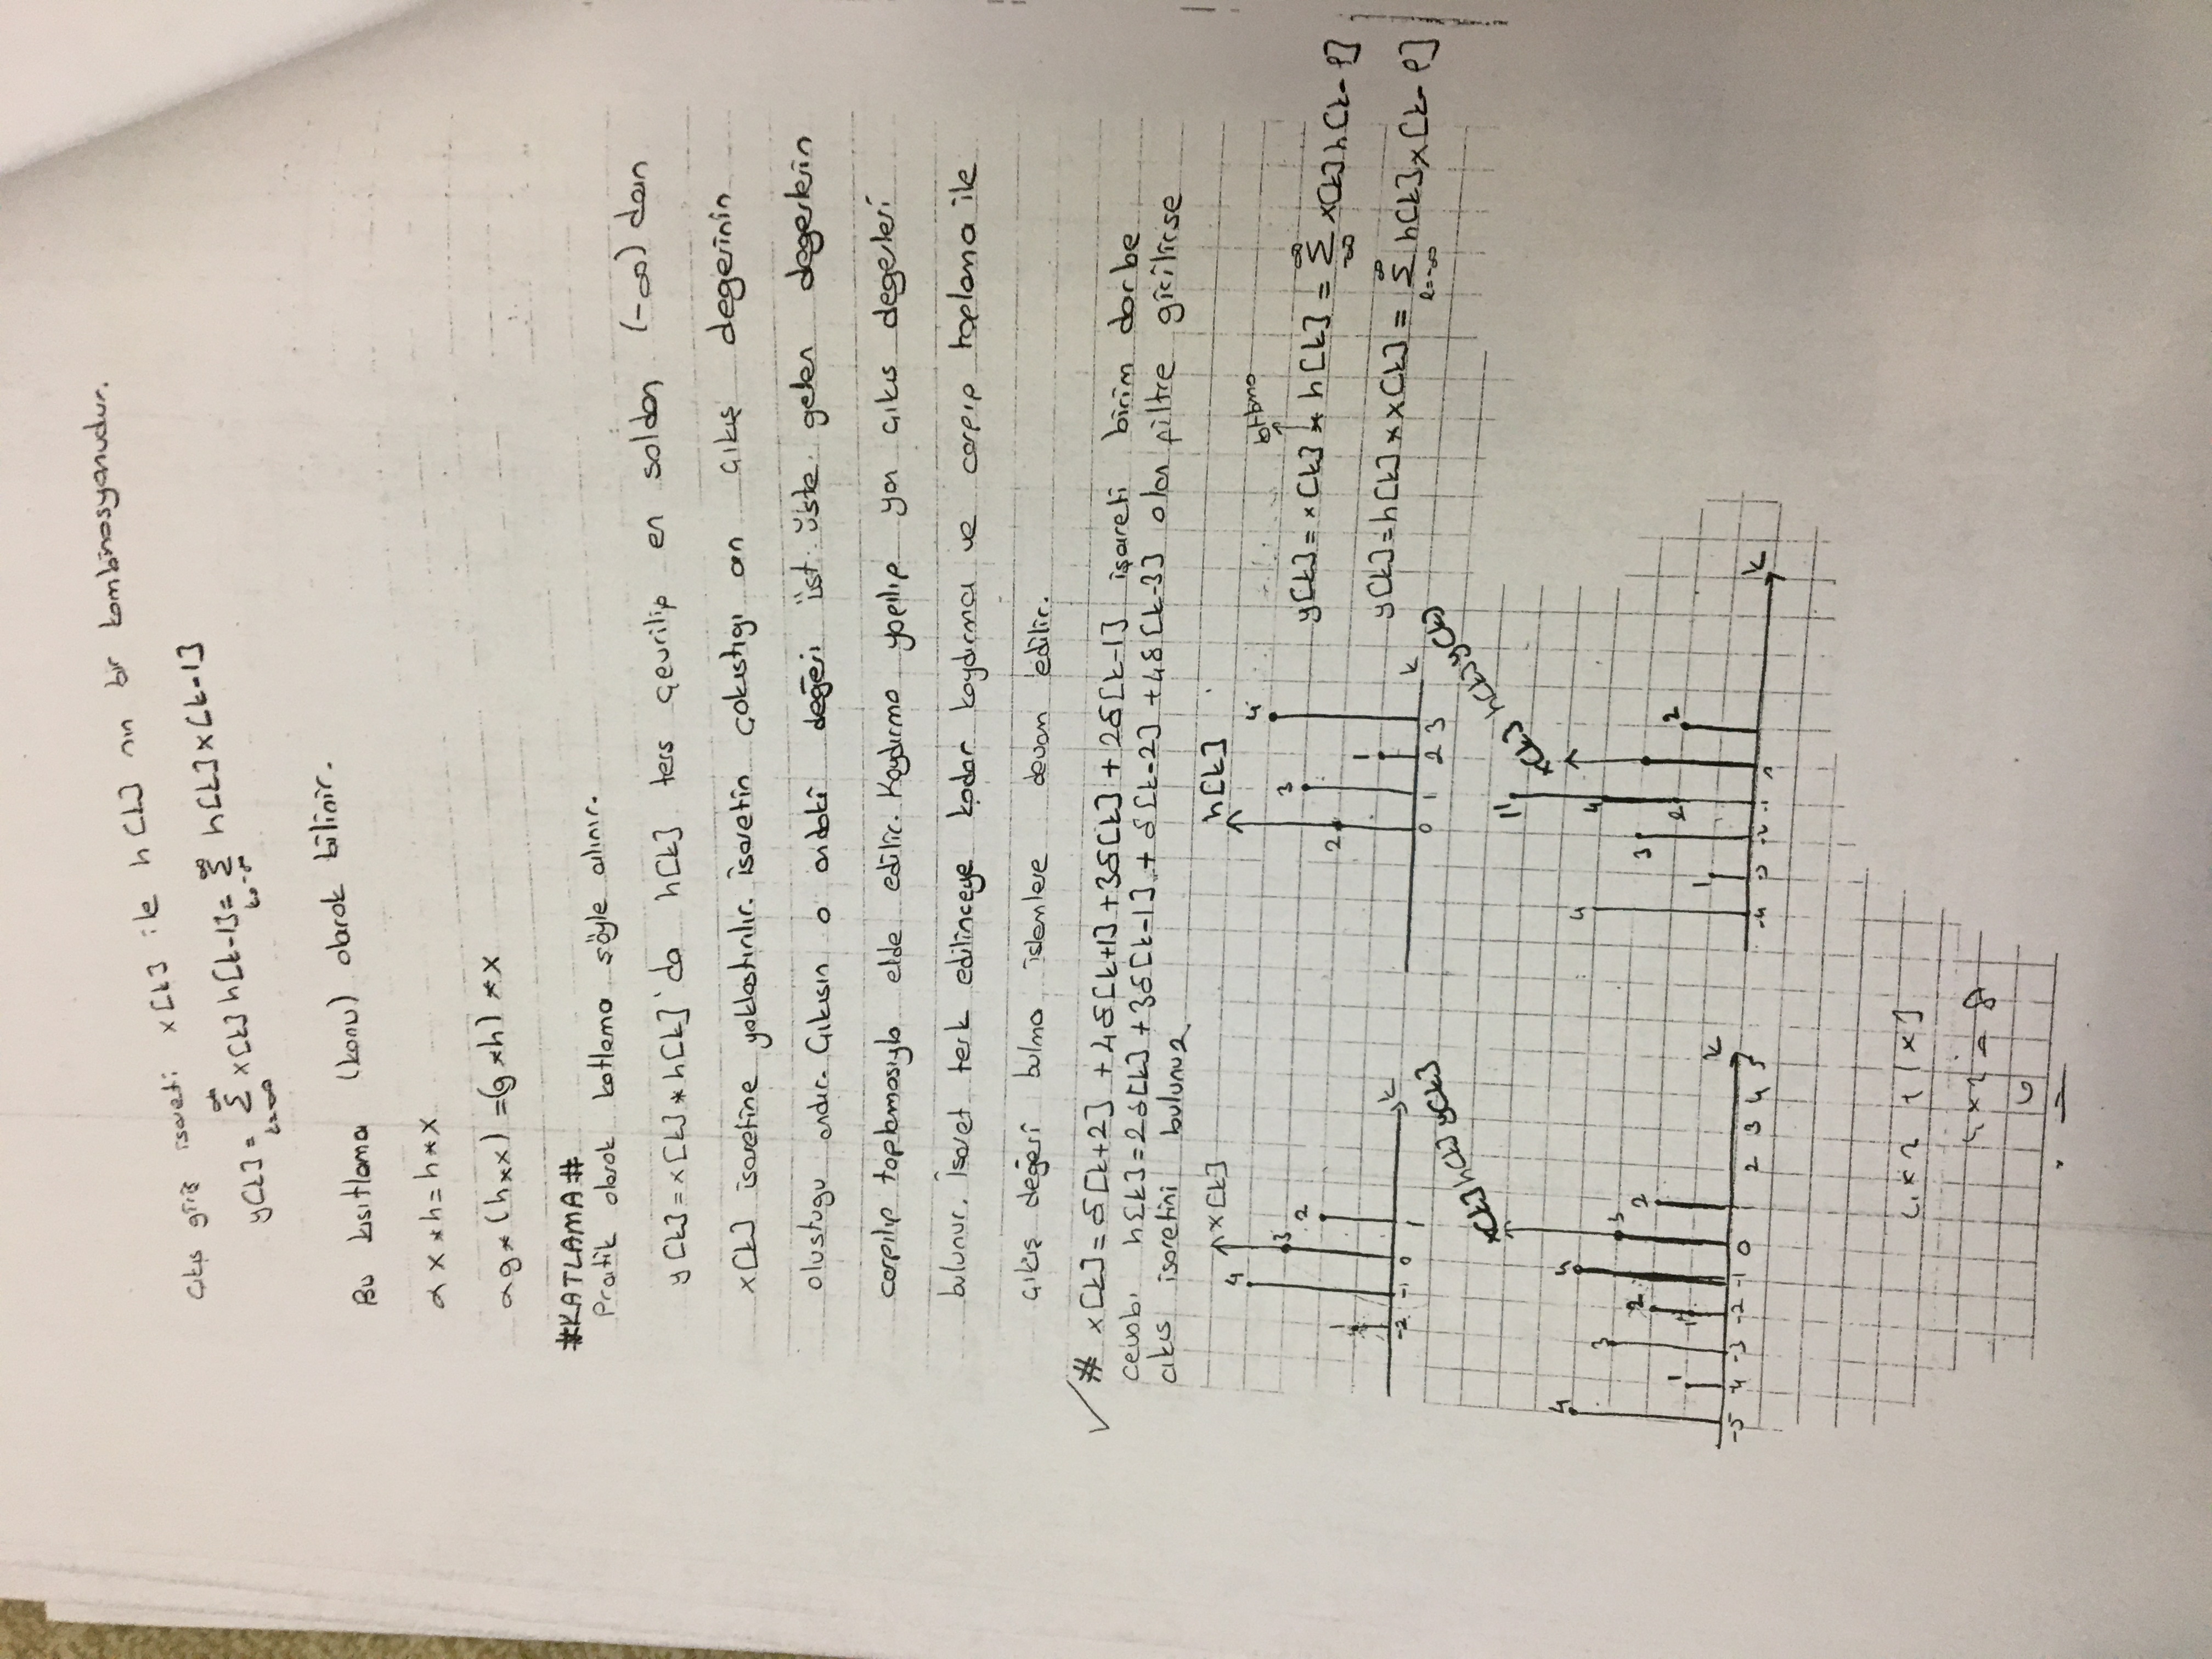 Çıkış giriş isareti x[k] ile h[k] nın bir kombinasyonudur.
y[k] = ∞ Σ k=-∞ x[k] h[k-1] = ∞ Σ k=-∞ h[k] x[k-1]
Bu kısıtlama (konu) olarak bilinir.
α x * h = h * x
α g * (h * x) = (g * h) * x
#KATLAMA#
Pratik olarak katlama şöyle alınır.
y[k] = x[k] * h[k]'da h[k] ters çevrilip en soldan (-∞) dan
x[k] isaretine yaklastırılır. İsaretin çakıstıgı an çıkış degerinin
olustugu andır. Çıkısın o andaki değeri üst üste gelen degerlerin
carpılıp toplamasıyla elde edilir. Kaydırma yapılıp yan çıkıs degerleri
bulunur. İsaret terk edilinceye kadar kaydırma ve carpıp toplama ile
çıkış değeri bulma islemlere devam edilir.
✓ # x[k] = δ[k+2] + 4δ[k+1] + 3δ[k] + 2δ[k-1] işareti birim darbe
cevabı h[k] = 2δ[k] + 3δ[k-1] + δ[k-2] + 4δ[k-3] olan filtre girilirse
cıkıs isaretini bulunuz
x[k]
4
3
2
1
-2 -1 0 1 k
h[k]
4
3
2
1
0 1 2 3 k
y[k] = x[k] * h[k] = ∞ Σ -∞ x[k] h[k-l]
y[k] = h[k] * x[k] = ∞ Σ l=-∞ h[k] x[k-l]
x[k] h[k] y[k]
4 1 3 2 1 4 3 2
-5 -4 -3 -2 -1 0 1 2 3 4 5 k
x[k] h[k] y[k]
11
4 1 3 4 2 2
-4 -3 -2 -1 k
4 x 2 + 1 x 3
4 x 2 = 8